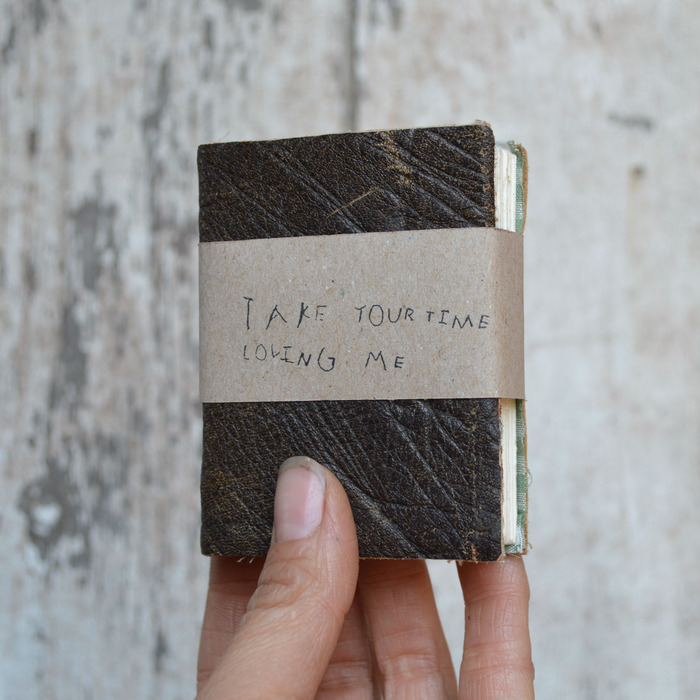 TAKE YOUR TIME
LOVING ME